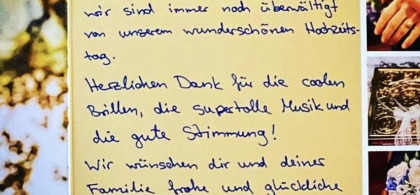 wir sind immer noch überwältigt
von unserem wunderschönen Hochzeits-
tag.
Herzlichen Dank für die coolen
Brillen, die supertolle Musik und
die gute Stimmung!
Wir wünschen dir und deiner
Familie frohe und glückliche